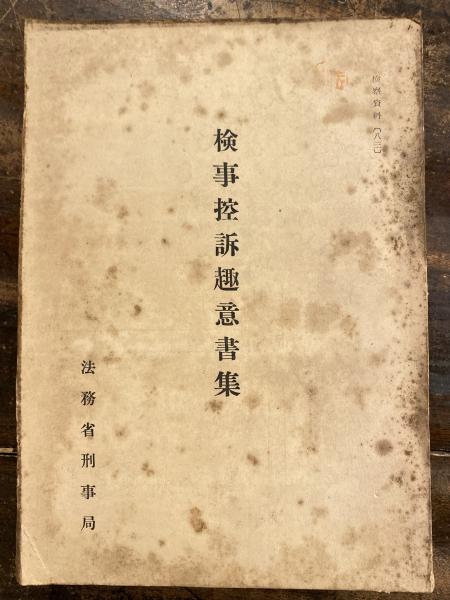 検察資料〔八三〕
検事控訴趣意書集
法務省刑事局